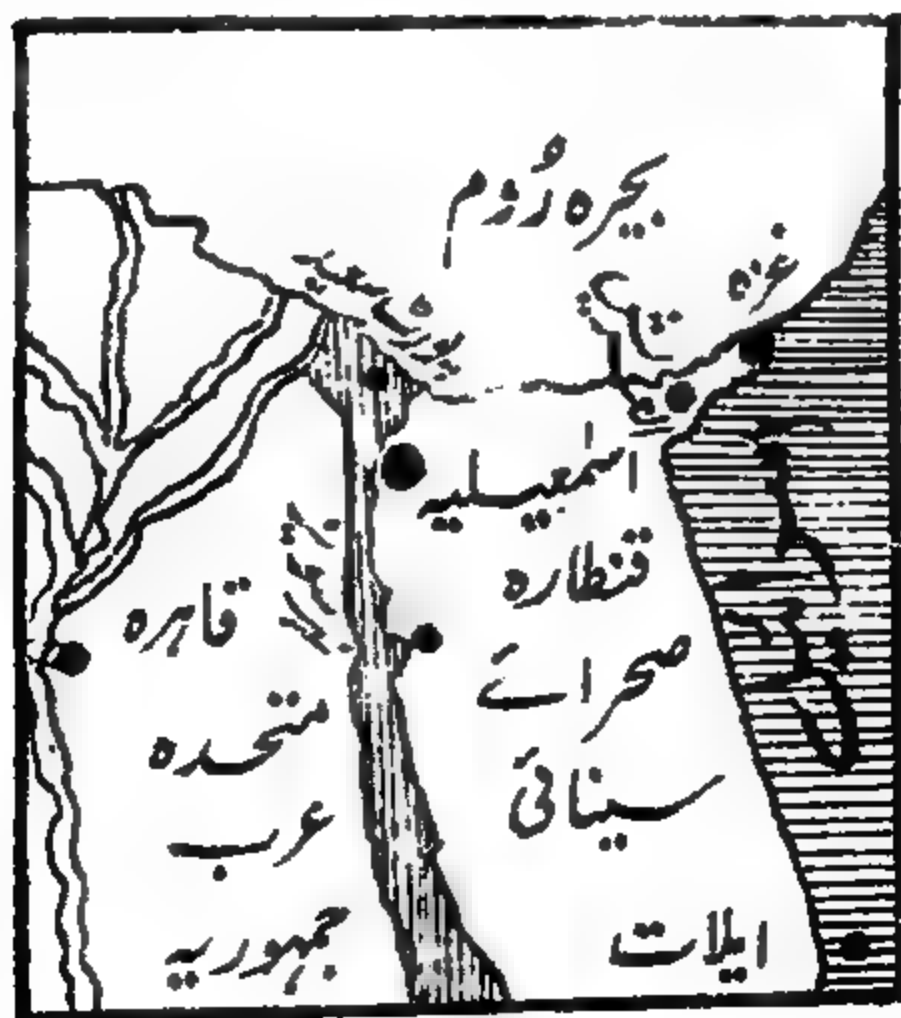 بحیرہ رُوم
غزہ
پورٹ سعید
اسمٰعیلیہ
قنطارہ
صحرائے
سینائی
قاہرہ
متحدہ
عرب
جمہوریہ
ایلات